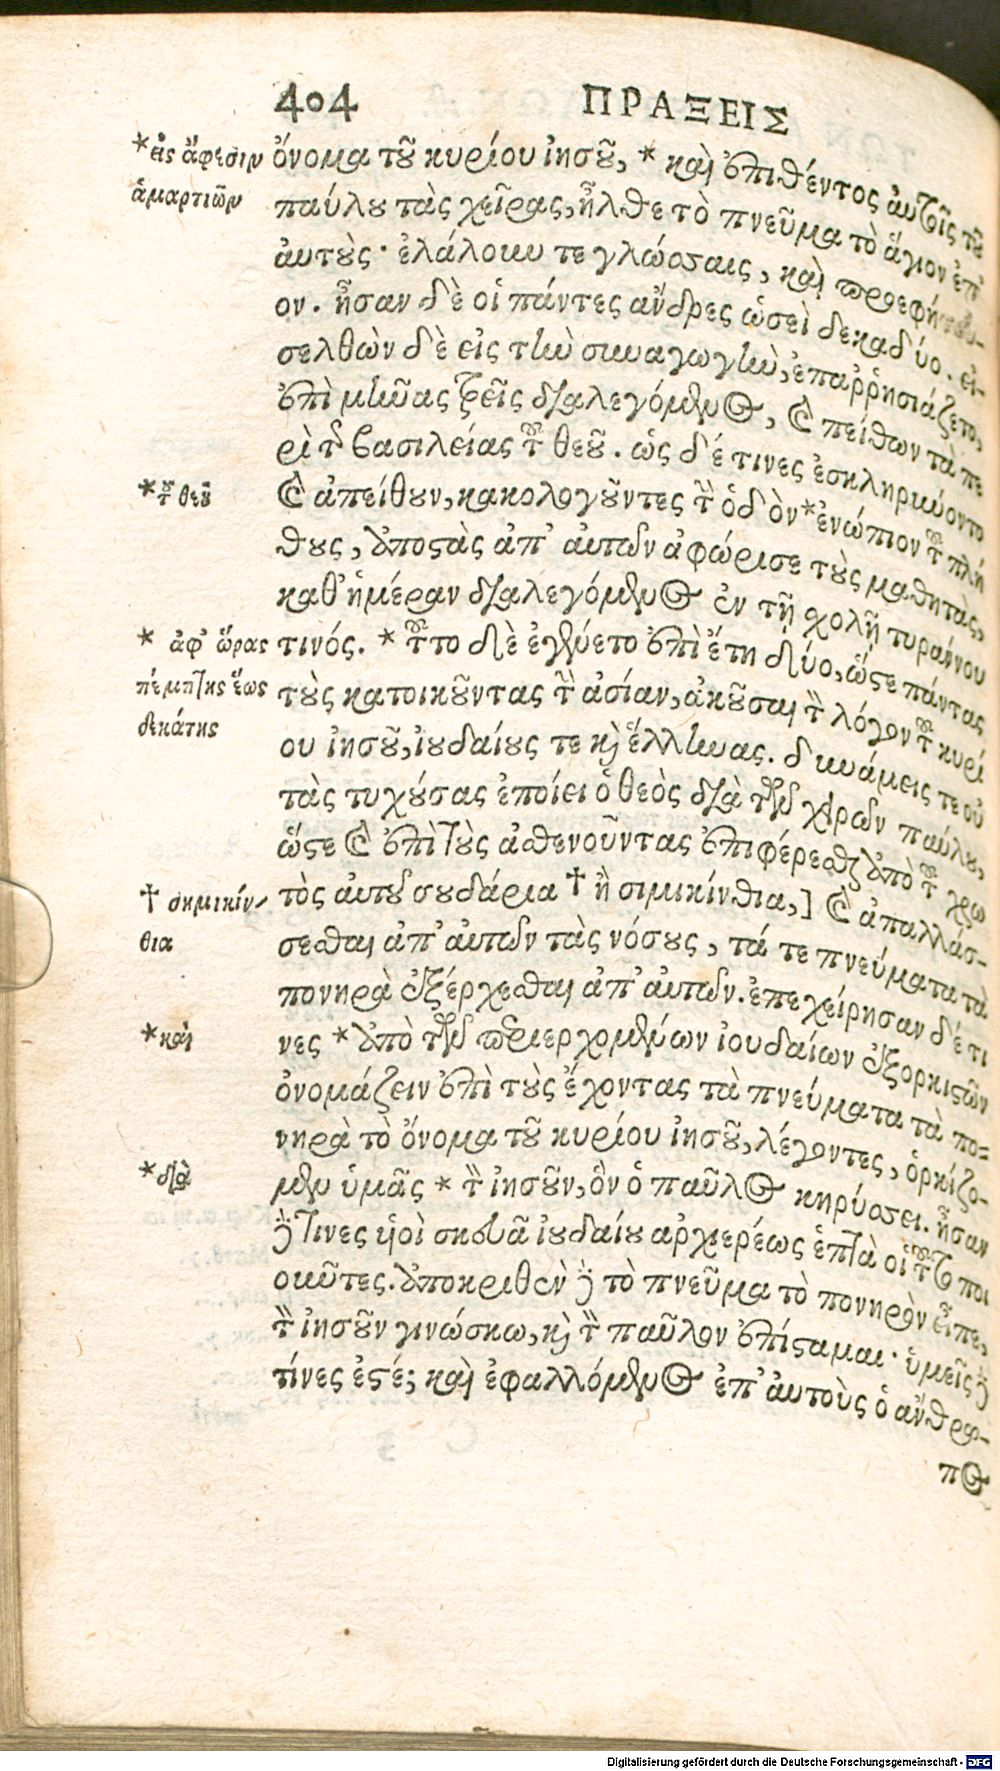 404 ΠΡΑΞΕΙΣ
*εἰς ἄφεσιν
ἁμαρτιῶν
ὄνομα τοῦ κυρίου ἰησοῦ, * καὶ ἐπιθέντος αὐτοῖς τοῦ
παύλου τὰς χεῖρας, ἦλθε τὸ πνεῦμα τὸ ἅγιον ἐπ'
αὐτούς· ἐλάλουν τε γλώσσαις, καὶ προεφήτευ-
ον. ἦσαν δὲ οἱ πάντες ἄνδρες ὡσεὶ δεκαδύο. εἰ-
σελθὼν δὲ εἰς τὴν συναγωγὴν, ἐπαῤῥησιάζετο,
ἐπὶ μῆνας τρεῖς διαλεγόμενος, καὶ πείθων τὰ πε
ρὶ τῆς βασιλείας τοῦ θεοῦ. ὡς δέ τινες ἐσκληρύνοντο
*τοῦ θεοῦ
καὶ ἀπείθουν, κακολογοῦντες τὴν ὁδὸν * ἐνώπιον τοῦ πλή
θους, ἀποστὰς ἀπ' αὐτῶν ἀφώρισε τοὺς μαθητὰς,
καθ' ἡμέραν διαλεγόμενος ἐν τῇ σχολῇ τυράννου
* ἀφ' ὥρας
πέμπτης ἕως
δεκάτης
τινός. * τοῦτο δὲ ἐγένετο ἐπὶ ἔτη δύο, ὥστε πάντας
τοὺς κατοικοῦντας τὴν ἀσίαν, ἀκοῦσαι τὸν λόγον τοῦ κυρί
ου ἰησοῦ, ἰουδαίους τε καὶ ἕλληνας. δυνάμεις τε οὐ
τὰς τυχούσας ἐποίει ὁ θεὸς διὰ τῶν χειρῶν παύλου,
ὥστε καὶ ἐπὶ τοὺς ἀσθενοῦντας ἐπιφέρεσθαι ἀπὸ τοῦ χρω
† σημικίν-
θια
τὸς αὐτοῦ σουδάρια † ἢ σιμικίνθια,] καὶ ἀπαλλάσ-
σεσθαι ἀπ' αὐτῶν τὰς νόσους, τά τε πνεύματα τὰ
πονηρὰ ἐξέρχεσθαι ἀπ' αὐτῶν. ἐπεχείρησαν δέ τι
*καὶ
νες * ἀπὸ τῶν περιερχομένων ἰουδαίων ἐξορκιστῶν
ὀνομάζειν ἐπὶ τοὺς ἔχοντας τὰ πνεύματα τὰ πο-
νηρὰ τὸ ὄνομα τοῦ κυρίου ἰησοῦ, λέγοντες, ὁρκίζο-
*διὰ
μεν ὑμᾶς * τὸν ἰησοῦν, ὃν ὁ παῦλος κηρύσσει. ἦσαν
δέ τινες υἱοὶ σκευᾶ ἰουδαίου ἀρχιερέως ἑπτὰ οἱ τοῦτο ποι
οῦντες. ἀποκριθὲν δὲ τὸ πνεῦμα τὸ πονηρὸν εἶπε,
τὸν ἰησοῦν γινώσκω, καὶ τὸν παῦλον ἐπίσταμαι· ὑμεῖς δὲ
τίνες ἐστέ; καὶ ἐφαλλόμενος ἐπ' αὐτοὺς ὁ ἄνθρω-
πος
Digitalisierung gefördert durch die Deutsche Forschungsgemeinschaft - DFG